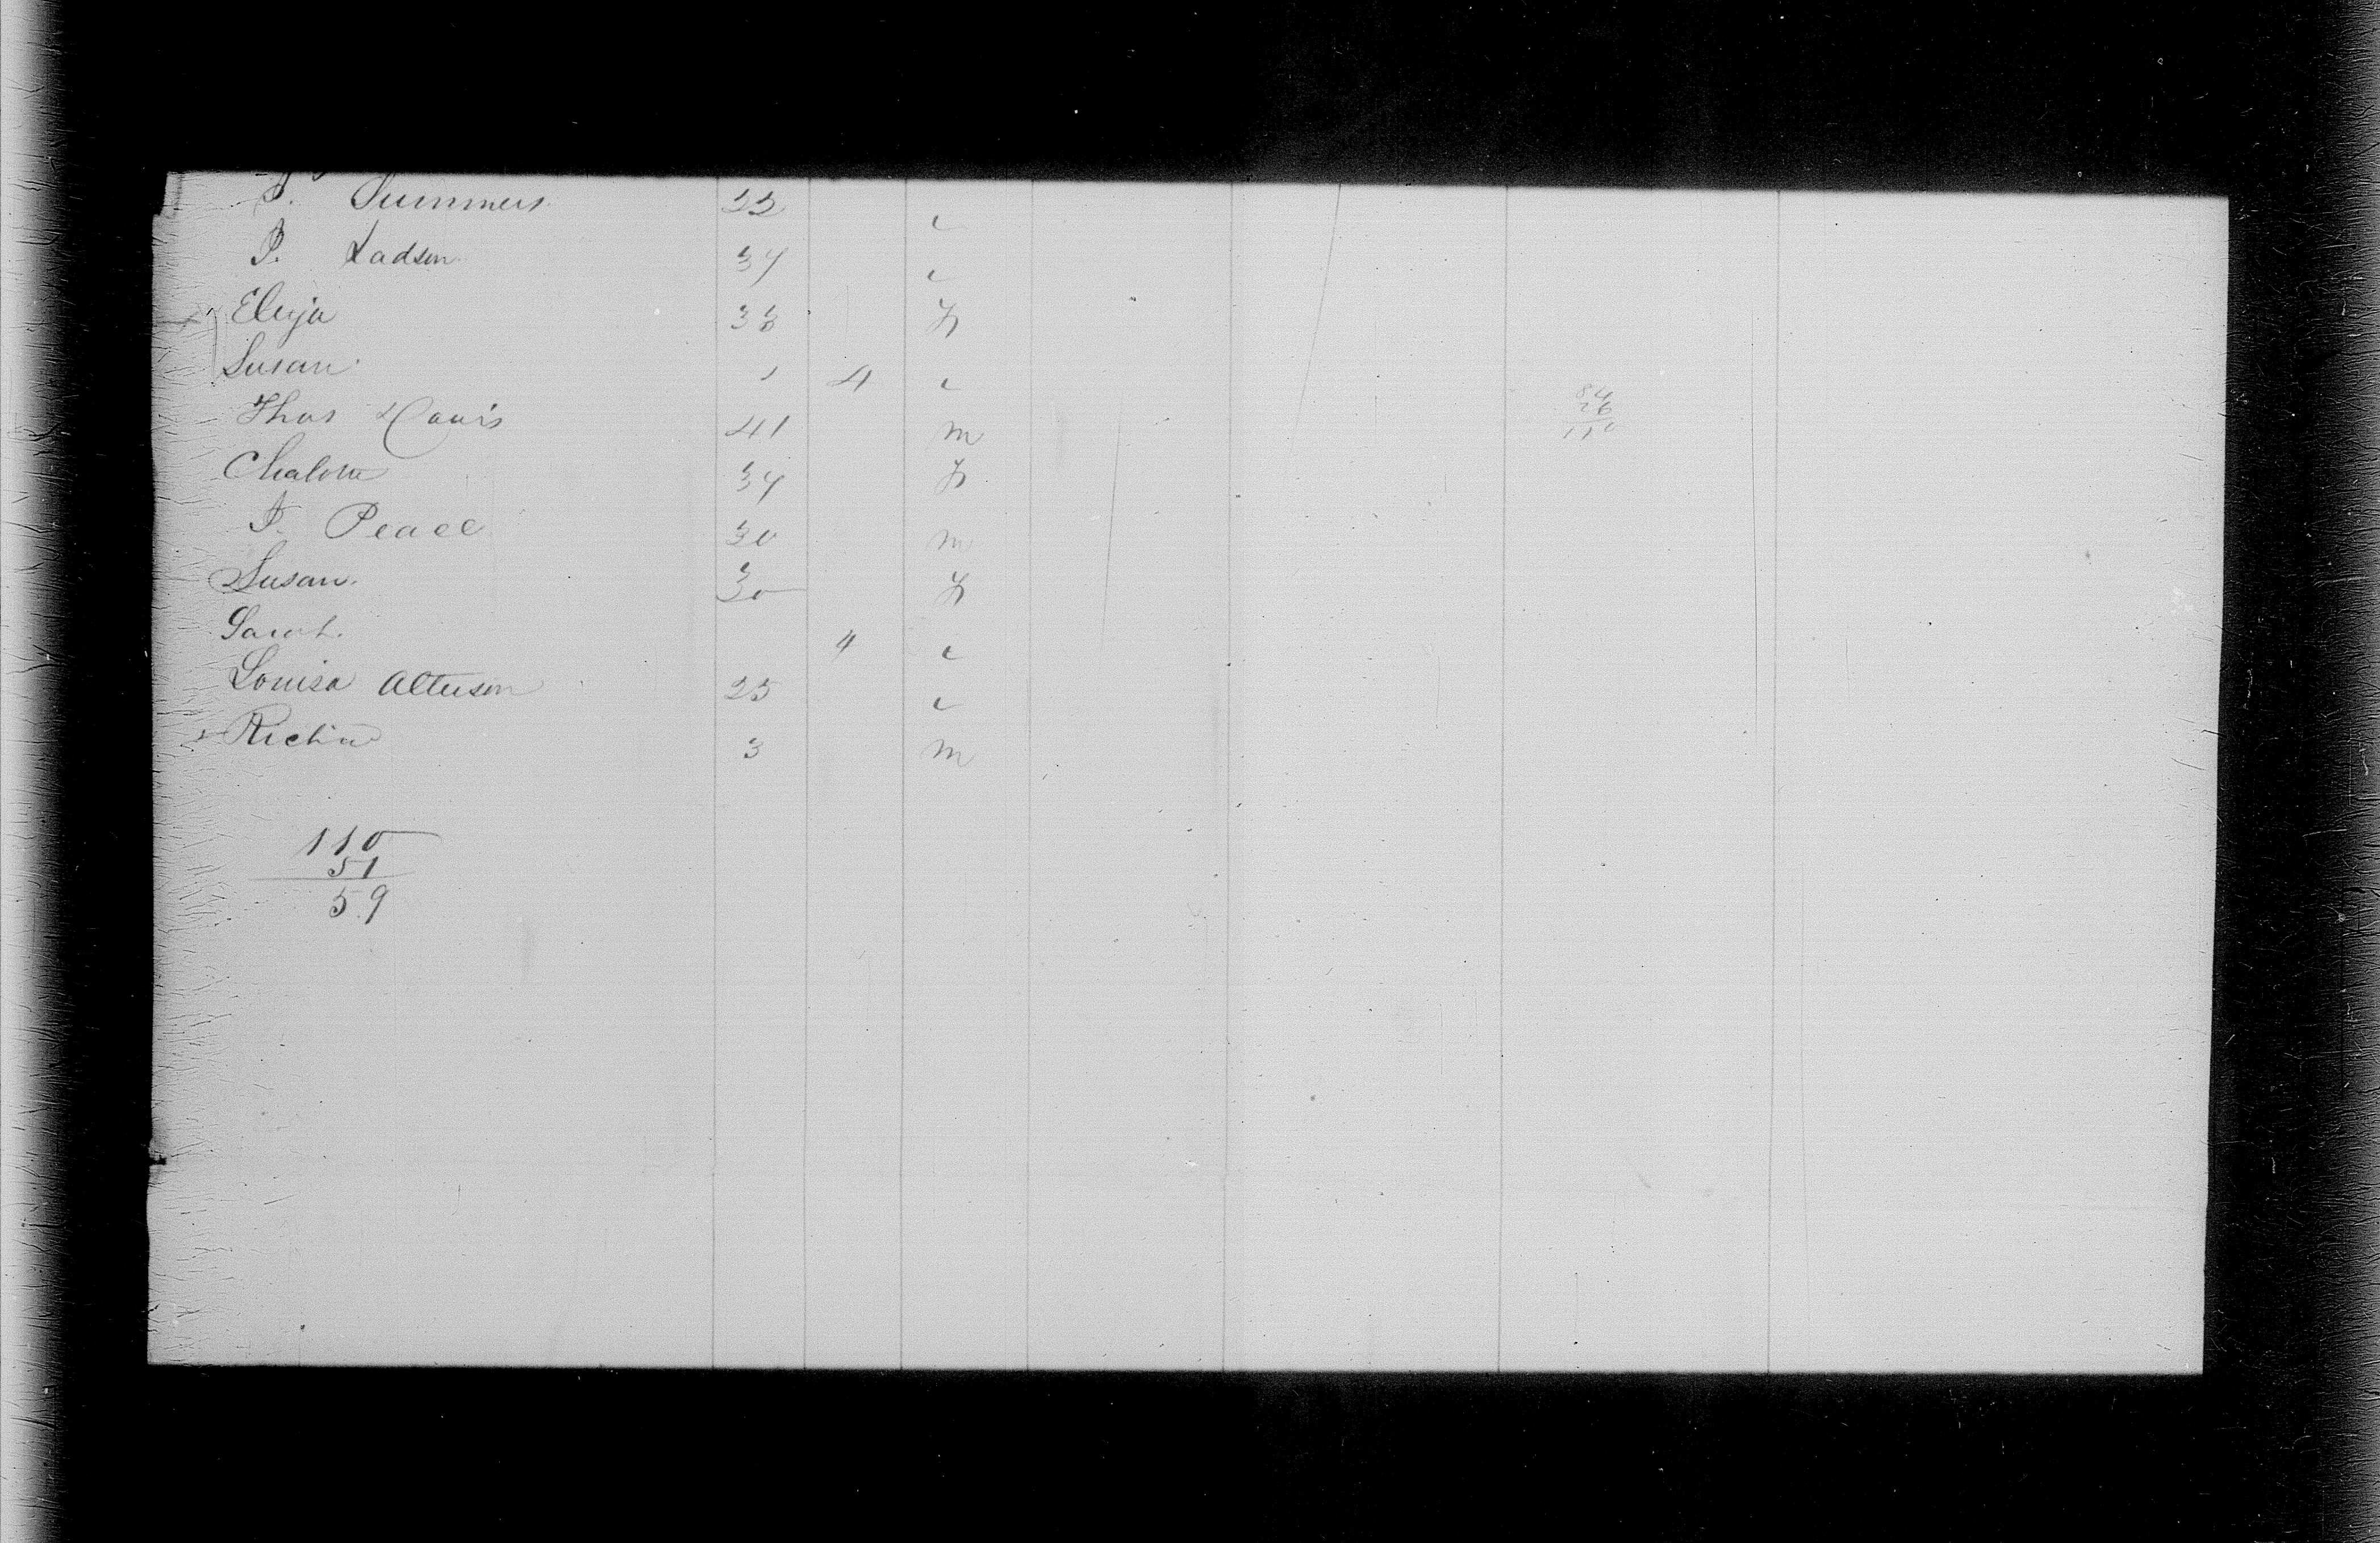 S. Summers 22 "
P. Ladson 34 "
Eliza 38 F
Susan 1 4 "
Thos Davis 41 m
84
26
110
34 F
P. Peace 30 m
Susan 30 F
Sarah 4 "
Louisa Alterson 25 "
3 m
110
51
59